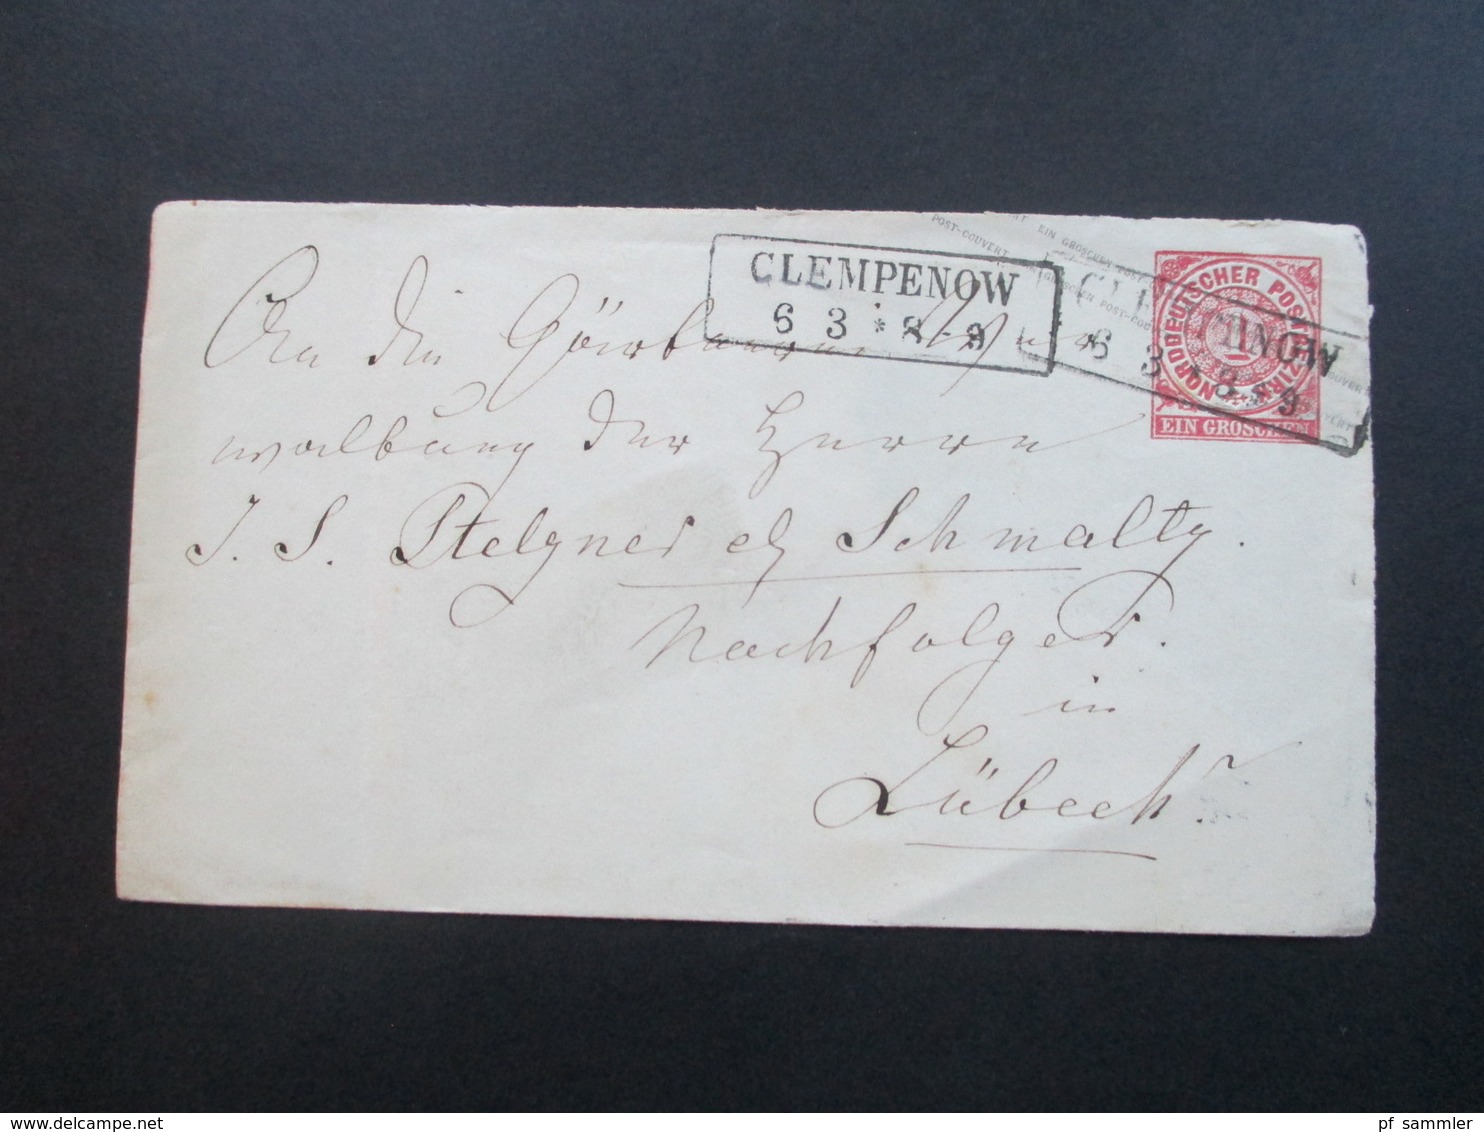 POST-COUVERT EIN GROSCHEN POST-COUVERT
EIN GROSCHEN POST
CLEMPENOW
6 3 * 8-9
NORDDEUTSCHER POSTBEZIRK
1
EIN GROSCHEN
CLE NOW
6 3 * 8-9
An die
waltung der Herren
J. S. Stelzner & Schmaltz.
Nachfolger.
in
Lübeck.
delcampe.net
pf_sammler